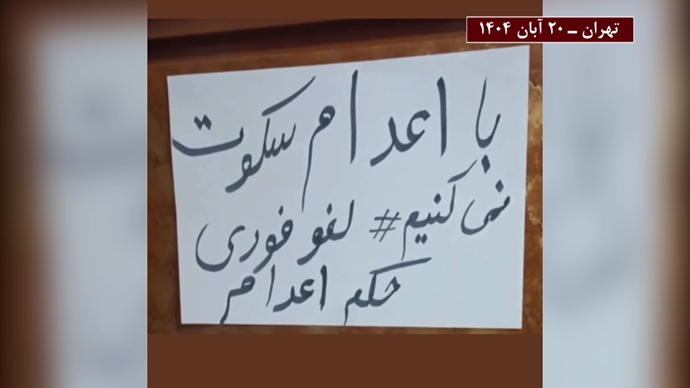 تهران – ۲۰ آبان ۱۴۰۴
با اعدام سکوت
نمی کنیم # لغو فوری
حکم اعدام